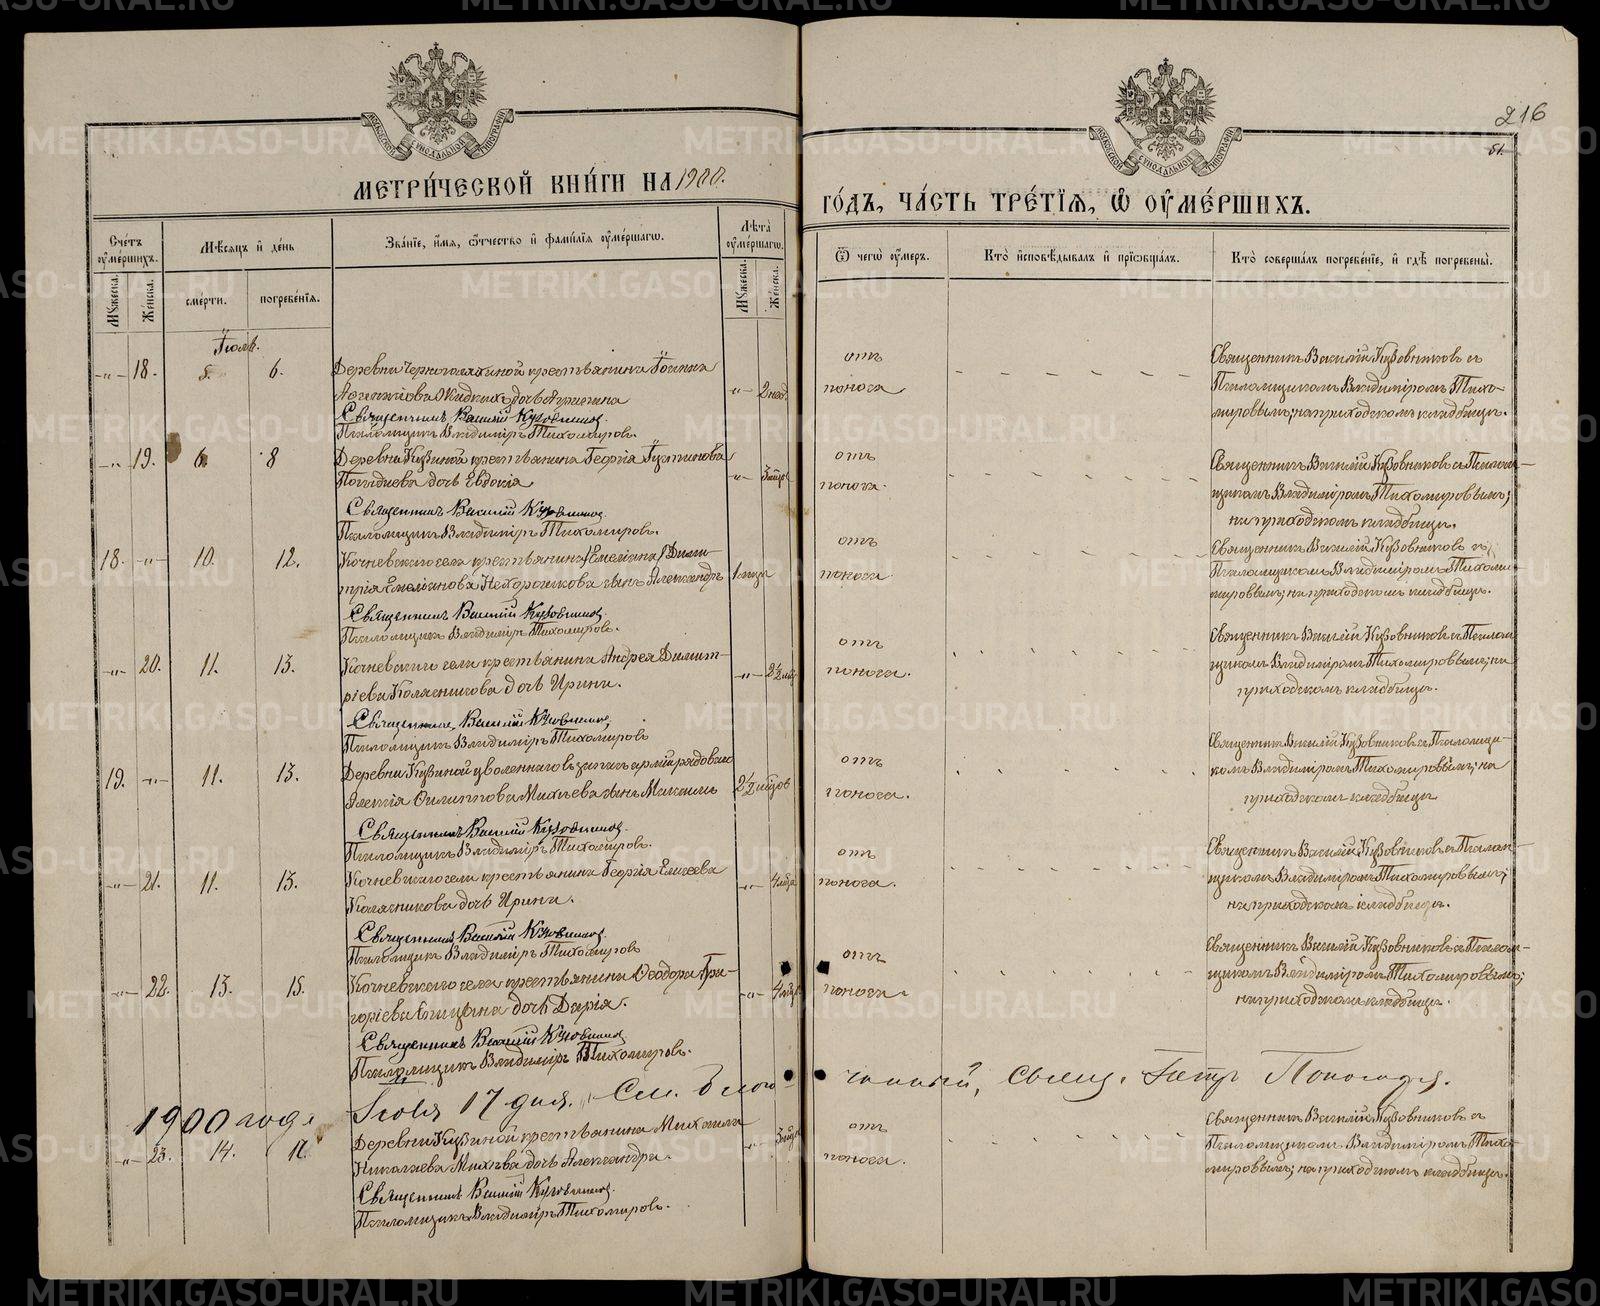 216
51.
МОСКОВСКОЙ СѴНОДАЛЬНОЙ ТИПОГРАФІИ
МОСКОВСКОЙ СѴНОДАЛЬНОЙ ТИПОГРАФІИ
МЕТРИ́ЧЕСКОЙ КНИ́ГИ НА 1900.
ГО́ДЪ, ЧА́СТЬ ТРЕ́ТІѦ, Ѡ ОУ҆МЕ́РШИХЪ.
Сче́тъ оу҆ме́ршихъ.
Мꙋжеска.
Же́нска.
Мѣ́сяцъ и҆ де́нь
сме́рти.
погребе́нїѧ.
Зва́нїе, и҆́мѧ, ѻ҆́тчество и҆ фами́лїѧ оу҆ме́ршагѡ.
Лѣ́та оу҆ме́ршагѡ.
Мꙋжеска.
Же́нска.
Ѿ чегѡ̀ оу҆́меръ.
Кто̀ и҆сповѣ́дывалъ и҆ прїѡбща́лъ.
Кто̀ соверша́лъ погребе́нїе, и҆ гдѣ̀ погребены̀.
Іюль.
-„- 18. 5. 6. Деревни Черноголяхиной крестьянина
дочь
-„- 2 нед. отъ поноса
Священникъ Василій Кузовниковъ
Псаломщикъ Владиміръ Тихомировъ.
Священникъ Василій Кузовниковъ съ
Псаломщикомъ Владиміромъ Тихо-
мировымъ; на приходскомъ кладбищѣ.
-„- 19. 6. 8 Деревни Кузиной крестьянина Георгія
дочь Евдокія
-„- отъ поноса.
Священникъ Василій Кузовниковъ.
Псаломщикъ Владиміръ Тихомировъ.
Священникъ Василій Кузовниковъ съ Псалом-
щикомъ Владиміромъ Тихомировымъ;
на приходскомъ кладбищѣ.
18. -„- 10. 12. Кочневскаго села крестьянина (Емеліана) Дими-
трія Емеліанова Нехорошкова сынъ Александръ
отъ поноса
Священникъ Василій Кузовниковъ
Псаломщикъ Владиміръ Тихомировъ.
Священникъ Василій Кузовниковъ съ
Псаломщикомъ Владиміромъ Тихоми-
ровымъ; на приходскомъ кладбищѣ.
-„- 20. 11. 13. Кочневскаго села крестьянина Андрея Димит-
ріева Колясникова дочь Ирина.
-„- отъ поноса.
Священникъ Василій Кузовниковъ
Псаломщикъ Владиміръ Тихомировъ
Священникъ Василій Кузовниковъ съ Псалом-
щикомъ Владиміромъ Тихомировымъ; на
приходскомъ кладбищѣ.
19. -„- 11. 13. Деревни Кузиной уволеннаго въ запасъ арміи рядоваго
Алексія Филиппова Михѣева сынъ Максимъ
отъ поноса.
Священникъ Василій Кузовниковъ.
Псаломщикъ Владиміръ Тихомировъ.
Священникъ Василій Кузовниковъ съ Псаломщи-
комъ Владиміромъ Тихомировымъ; на
приходскомъ кладбищѣ
-„- 21. 11. 13. Кочневскаго села крестьянина Георгія Елисеева
Колясникова дочь Ирина.
-„- отъ поноса.
Священникъ Василій Кузовниковъ
Псаломщикъ Владиміръ Тихомировъ
Священникъ Василій Кузовниковъ съ Псалом-
щикомъ Владиміромъ Тихомировымъ;
на приходскомъ кладбищѣ.
-„- 22. 13. 15. Кочневскаго села крестьянина Ѳеодора Гри-
горіева дочь Дарія.
-„- отъ поноса.
Священникъ Василій Кузовниковъ
Псаломщикъ Владиміръ Тихомировъ.
Священникъ Василій Кузовниковъ съ Псалом-
щикомъ Владиміромъ Тихомировымъ;
на приходскомъ кладбищѣ.
1900 года Іюля 17 дня. Свящ. Петръ
-„- 23. 14. Деревни Кузиной крестьянина Михаила
Николаева Михѣева дочь Александра.
отъ поноса.
Священникъ Василій Кузовниковъ.
Псаломщикъ Владиміръ Тихомировъ.
Священникъ Василій Кузовниковъ съ
Псаломщикомъ Владиміромъ Тихо-
мировымъ; на приходскомъ кладбищѣ.
METRIKI.GASO-URAL.RU